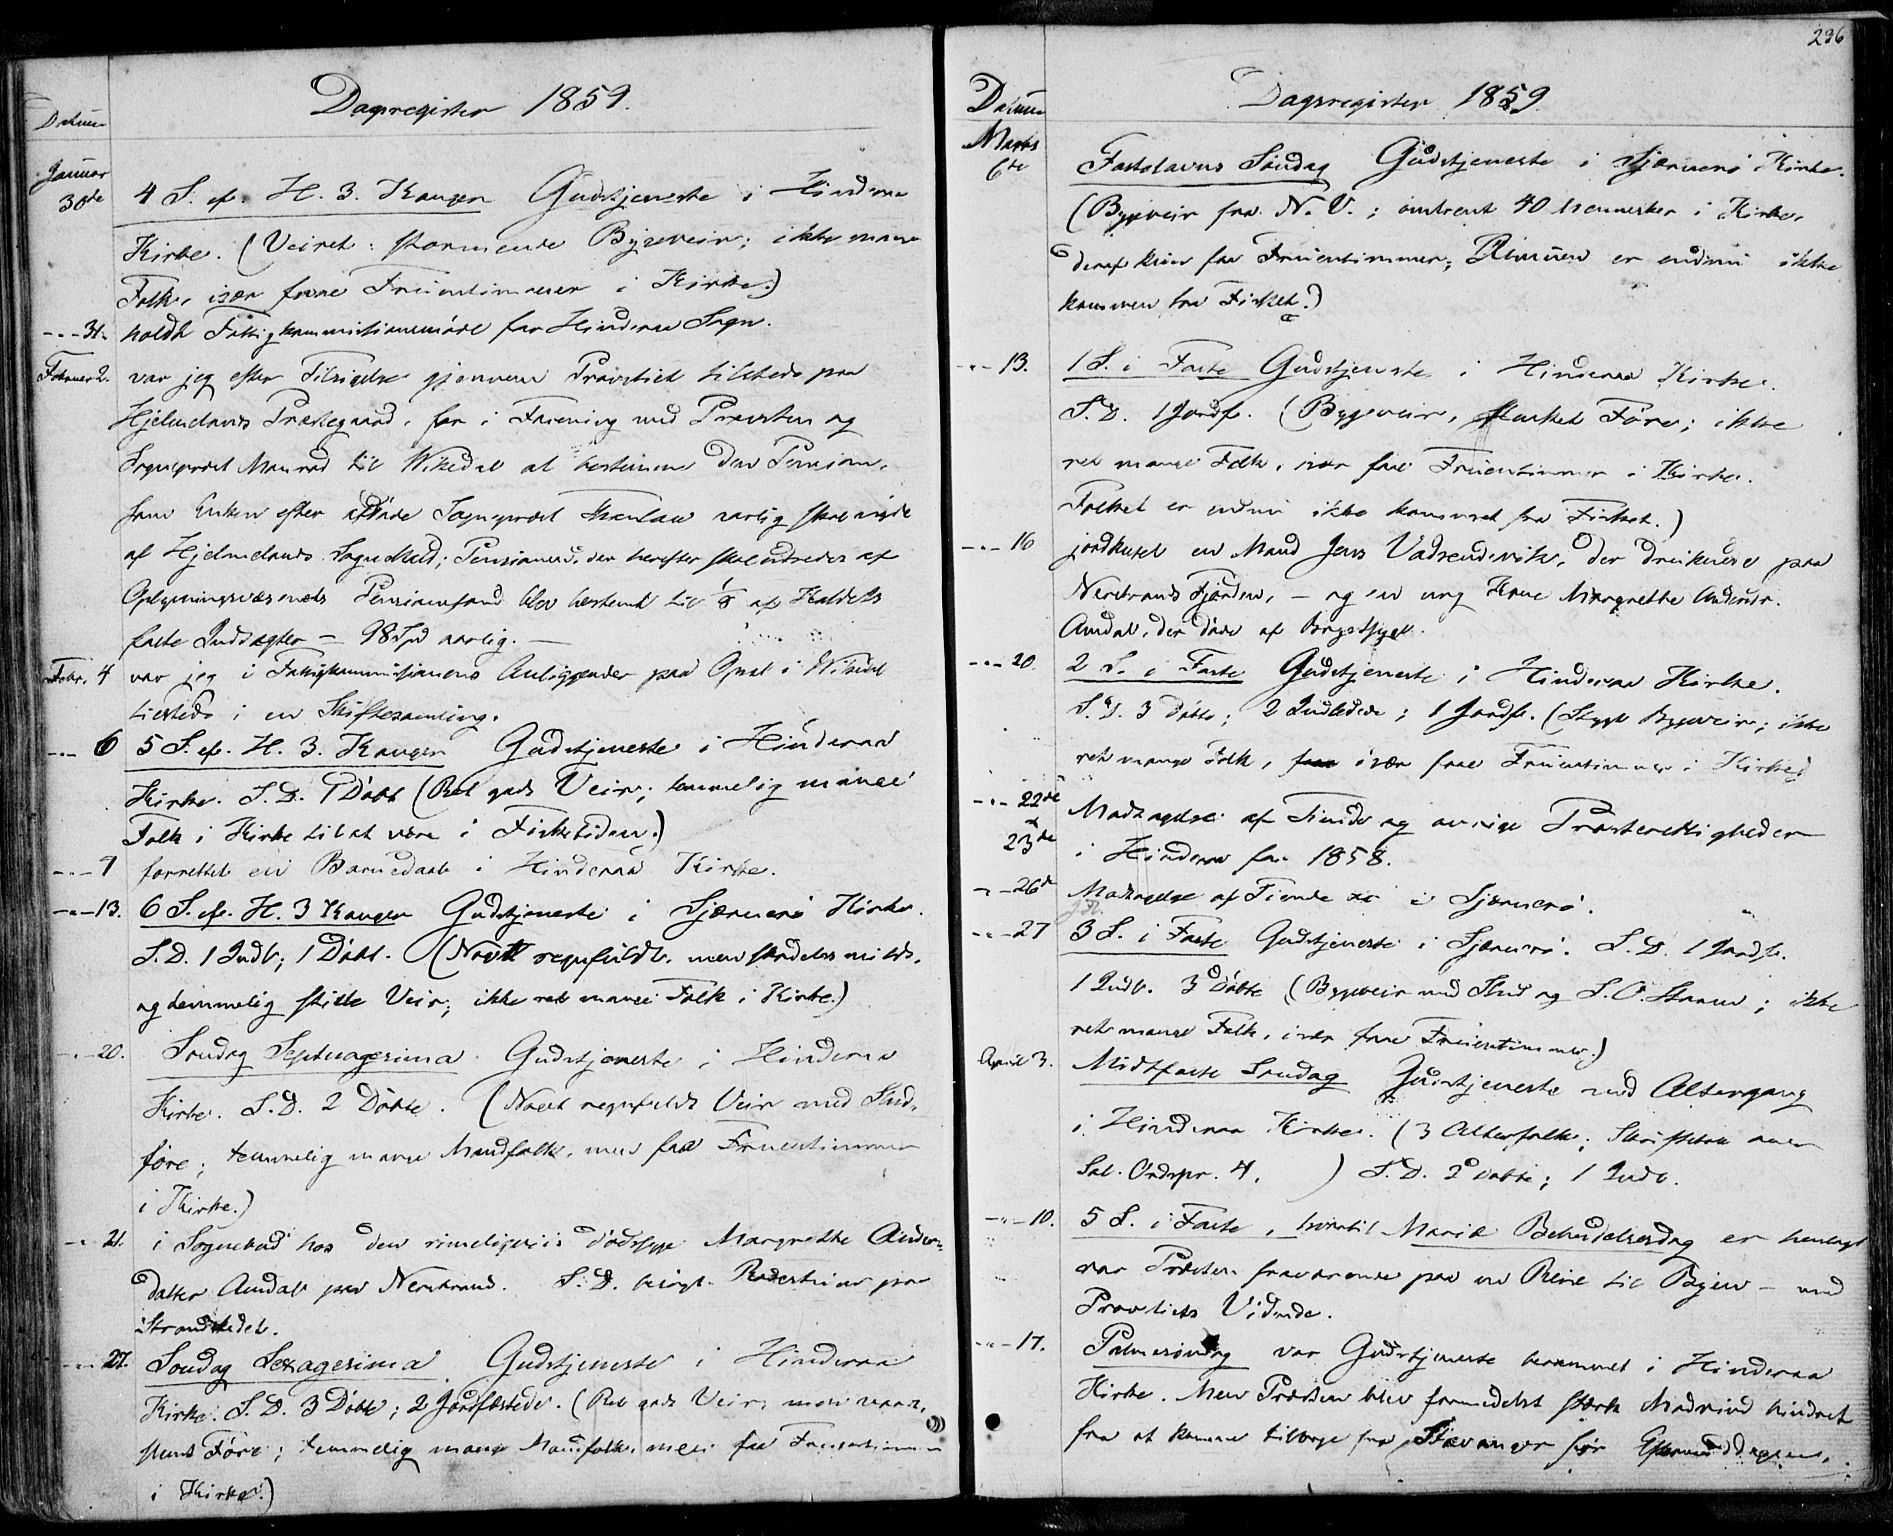 Dagsregister 1859.
Datum
Januar
30de 4 S. ef. H. 3. Konger Gudstjeneste i Hinderaa
Kirke. (Veiret: stormende Bygeveir; ikke mange
Folk, især færre Fruentimmer i Kirke.)
- " - 31. holdt Fattigkommissionsmøde for Hinderaa Sogn.
Februar 2. var jeg efter Tilsigelse gjennem Provstiet tilstede paa
Hjelmelands Præstegaard, for i Forening med Provsten og
Sogneprest Monrad til Wikedal at bestemme den Pension,
som Enken efter afdøde Sogneprest aarlig skal nyde
af Hjelmelands Sognekald; Pensionen, der herefter skal udredes af
Oplysningsvæsenets Pensionsfond blev bestemt til 1/8 af Kaldets
faste Indtægter - 98 Spd aarlig. -
Febr. 4 var jeg i Fattigkommissionens Anliggender paa Opsal i Wikedal
tilstede i en Skiftesamling.
- " - 6 5 S. ef. H. 3. Konger Gudstjeneste i Hinderaa
Kirke. S. D. 1 Døbt (Ret godt Veir; temmelig mange
Folk i Kirke til at være i Fisketiden.)
- " - 7 forrettet en Barnedaab i Hinderaa Kirke.
- " - 13. 6 S. ef. H. 3 Konger Gudstjeneste i Sjærnerø Kirke.
S. D. 1 Indl.; 1 Døbt. (Noget regnfuldt, men
og temmelig stille Veir; ikke ret mange Folk i Kirke.)
- " - 20. Søndag Septuagesima Gudstjeneste i Hinderaa
Kirke. S. D. 2 Døbte. (Noget regnfuldt Veir med
føre; temmelig mange Mandfolk, men faa Fruentimmer
i Kirke.)
- " - 21. i Sognebud hos den rimeligviis dødssyge Margrethe Anders-
datter Amdal paa Nerstrand. S. D. paa
Strandstedet.
- " - 27. Søndag Sexagesima Gudstjeneste i Hinderaa
Kirke. S. D. 3 Døbte; 2 Jordfæstede. (Ret godt Veir, men
Føre; temmelig mange Mandfolk, men faa Fruentimmer
i Kirke.)
236
Dagsregister 1859.
Datum
Marts
6te Fastelavns Søndag Gudstjeneste i Sjærnerø Kirke.
(Bygeveir fra N. V.; omtrent 40 Mennesker i Kirke,
deraf kun faa Fruentimmer; Almuen er endnu ikke
kommen fra Fisket.)
- " - 13. 1 S. i Faste Gudstjeneste i Hinderaa Kirke.
S. D. 1 Jordf. (Bygeveir, Føre; ikke
ret mange Folk, især faa Fruentimmer i Kirke.
Folket er endnu ikke kommet fra Fisket.)
- " - 16 jordkastet en Mand Jens Vadsendvik, der druknede paa
Nerstrands Fjorden, - og en ung Kone Margrethe Andersdr.
Amdal, der døde af Brystsyge.
- " - 20. 2 S. i Faste Gudstjeneste i Hinderaa Kirke.
S. D. 3 Døbte; 2 Indledede; 1 Jordf. (Stygt Bygeveir; ikke
ret mange Folk, især faae Fruentimmer i Kirke.)
- " - 22de
&
23de Modtagelse af Tiende og øvrige Præsterettigheder
i Hinderaa for 1858.
- " - 26de Modtagelse af Tiende &c i Sjærnerø.
- " - 27 3 S. i Faste Gudstjeneste i Sjærnerø. S. D. 1 Jordf.
1 Indl. 3 Døbte (Bygeveir med Slud og S. O. Storm; ikke
ret mange Folk, især faae Fruentimmer.)
April 3. Midtfaste Søndag Gudstjeneste med Altergang
i Hinderaa Kirke. (3 Alterfolk; Skriftetale over
Sal. Ordspr. 4, ) S. D. 2 Døbte; 1 Indl.
- " - 10. 5 S. i Faste, hvortil Mariæ Bebudelsesdag er henlagt
var Præsten fraværende paa en Reise til Byen - med
Provstiets Vidende.
- " - 17. Palmesøndag var Gudstjeneste berammet i Hinderaa
Kirke. Men Præsten blev formedelst stærk Modvind hindret
fra at komme tilbage fra Stavanger før Eftermiddagen.